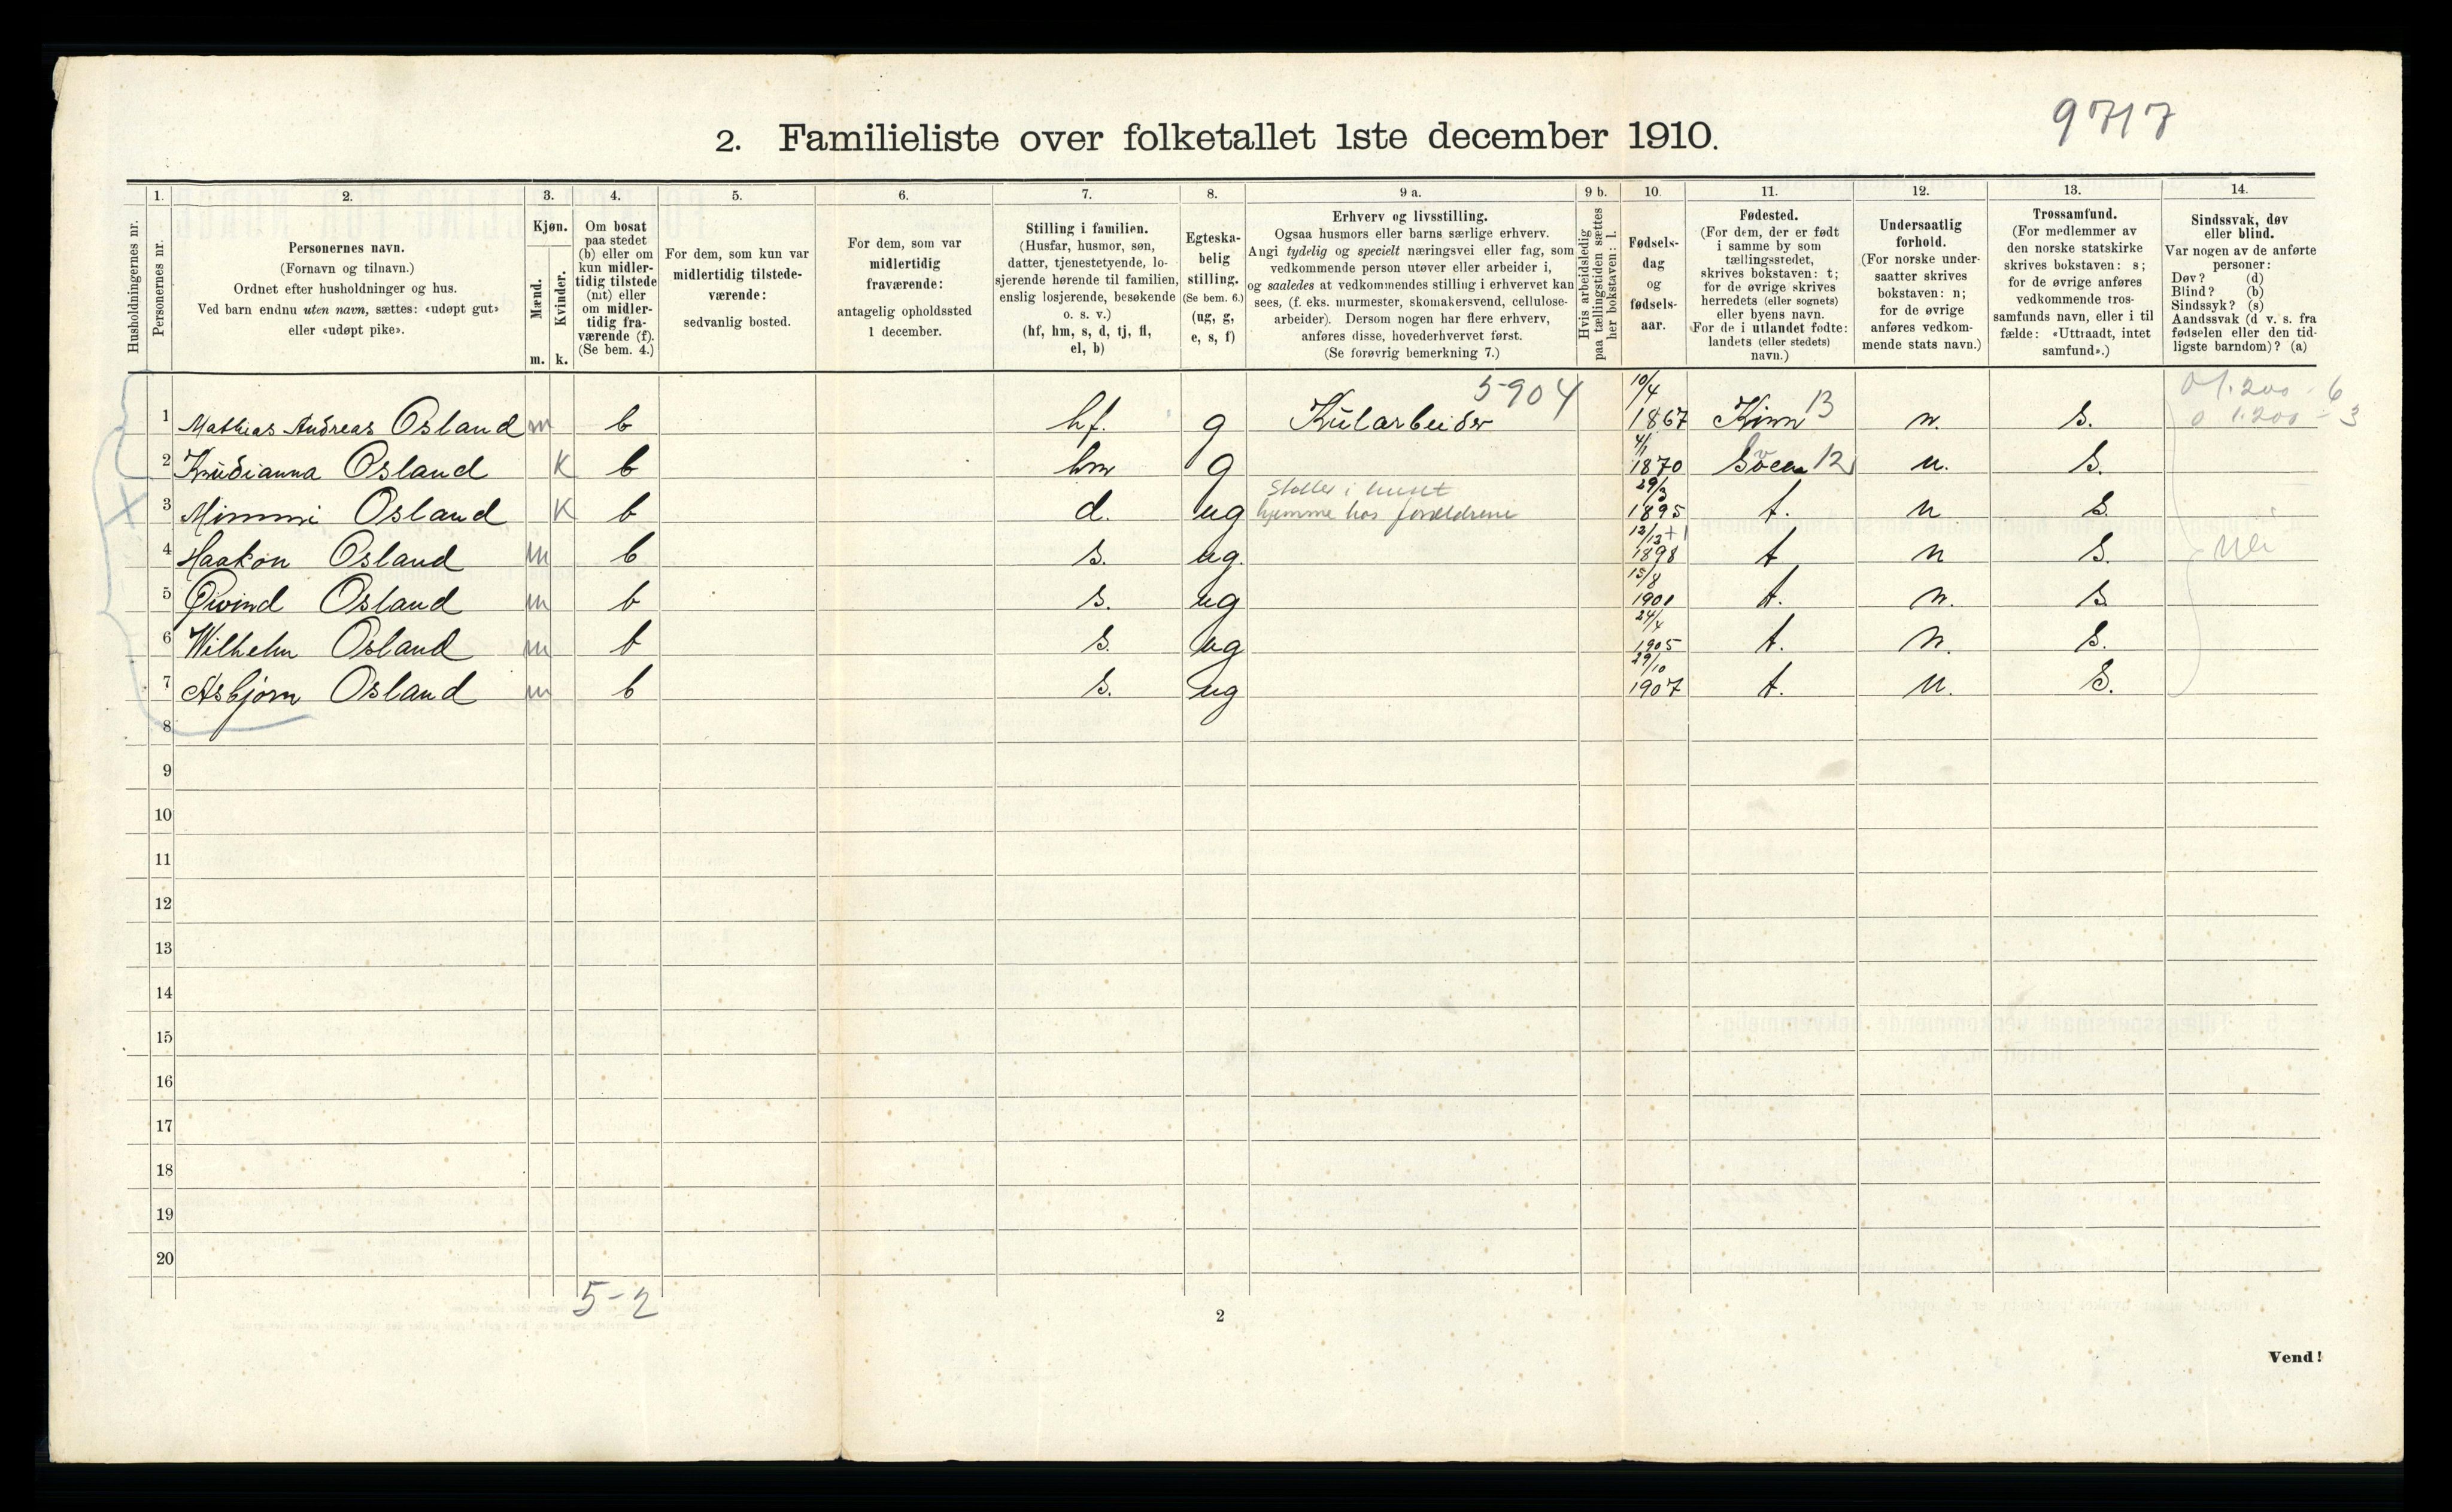 9717
2. Familieliste over folketallet 1ste december 1910.
1. 2. 3. 4. 5. 6. 7. 8. 9 a. 9 b. 10. 11. 12. 13. 14.
Husholdningernes nr.
Personernes nr.
Personernes navn.
(Fornavn og tilnavn.)
Ordnet efter husholdninger og hus.
Ved barn endnu uten navn, sættes: «udøpt gut»
eller «udøpt pike».
Kjøn.
Mænd.
Kvinder.
m. k.
Om bosat
paa stedet
(b) eller om
kun midler-
tidig tilstede
(mt) eller
om midler-
tidig fra-
værende (f).
(Se bem. 4.)
For dem, som kun var
midlertidig tilstede-
værende:
sedvanlig bosted.
For dem, som var
midlertidig
fraværende:
antagelig opholdssted
1 december.
Stilling i familien.
(Husfar, husmor, søn,
datter, tjenestetyende, lo-
sjerende hørende til familien,
enslig losjerende, besøkende
o. s. v.)
(hf, hm, s, d, tj, fl,
el, b)
Egteska-
belig
stilling.
(Se bem. 6.)
(ug, g,
e, s, f)
Erhverv og livsstilling.
Ogsaa husmors eller barns særlige erhverv.
Angi tydelig og specielt næringsvei eller fag, som
vedkommende person utøver eller arbeider i,
og saaledes at vedkommendes stilling i erhvervet kan
sees, (f. eks. murmester, skomakersvend, cellulose-
arbeider). Dersom nogen har flere erhverv,
anføres disse, hovederhvervet først.
(Se forøvrig bemerkning 7.)
Hvis arbeidsledig
paa tællingstiden sættes
her bokstaven: l.
Fødsels-
dag
og
fødsels-
aar.
Fødested.
(For dem, der er født
i samme by som
tællingsstedet,
skrives bokstaven: t;
for de øvrige skrives
herredets (eller sognets)
eller byens navn.
For de i utlandet fødte:
landets (eller stedets)
navn.)
Undersaatlig
forhold.
(For norske under-
saatter skrives
bokstaven: n;
for de øvrige
anføres vedkom-
mende stats navn.)
Trossamfund.
(For medlemmer av
den norske statskirke
skrives bokstaven: s;
for de øvrige anføres
vedkommende tros-
samfunds navn, eller i til
fælde: «Uttraadt, intet
samfund».)
Sindssvak, døv
eller blind.
Var nogen av de anførte
personer:
Døv? (d)
Blind? (b)
Sindssyk? (s)
Aandssvak (d v. s. fra
fødselen eller den tid-
ligste barndom)? (a)
1 Mathias Andreas Osland m b hf. g Kularbeider 5-904 10/4 1867 Kinn 13 n. s.
2 Osland K b hm g 4/1 1870 12 n. s.
3 Mimmi Osland K b d. ug hjemme hos 29/3 1895 t. n s.
4 Haakon Osland m b s. ug. 12/12 +1 1898 t n s. Nei
5 Øivind Osland m b s. ug 15/8 1901 t. n. s.
6 Wilhelm Osland m b s. ug 24/4 1905 t. n. s.
7 Asbjørn Osland m b s. ug 29/10 1907 t. n. s.
8
9
10
11
12
13
14
15
16
17
18
19
20
5-2
2
Vend!